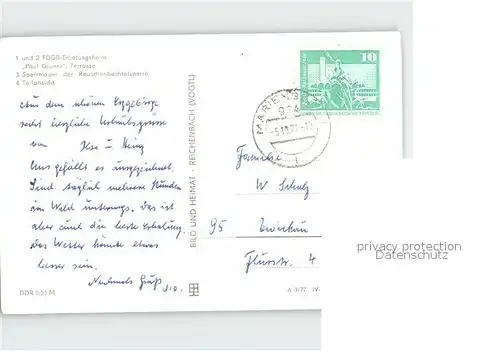 1 und 2 FDGB-Erholungsheim
„Paul Gruner“, Terrasse
3 Sperrmauer der Rauschenbachtalsperre
4 Teilansicht
Aus dem schönen Erzgebirge
recht herzliche Urlaubsgrüße
von Ilse u. Heinz
Uns gefällt es ausgezeichnet.
Sind täglich mehrere Stunden
im Wald unterwegs. Das ist
aber auch die beste Erholung.
Das Wetter könnte etwas
besser sein.
Nochmals Gruß
DDR 0,20 M
BILD UND HEIMAT · REICHENBACH (VOGTL)
10
MARIENB
Familie
W Schulz
95 Zwickau
Flurstr. 4
privacy protection
Datenschutz